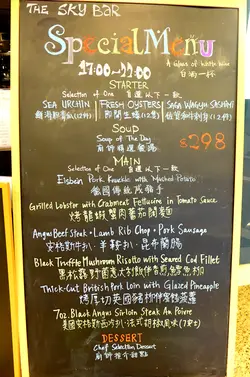 THE SKY BAR
Special Menu
17:00~22:00
A glass of white wine
白酒一杯
STARTER
Selection of One 首選以下一款
SEA URCHIN | FRESH OYSTERS | SAGA WAGYU SASHIMI
即開生蠔
SOUP
Soup of The Day
廚師精選餐湯
$298
MAIN
Selection of One 首選以下一款
Eisbein Pork Knuckle with Mashed Potato
德國傳統咸豬手
Grilled Lobster with Crabmeat Fettucine in Tomato Sauce
烤龍蝦蟹肉蕃茄闊麵
Angus Beef Steak · Lamb Rib Chop · Pork Sausage
安格斯牛扒 · 羊鞍扒 · 昆布蘭腸
Black Truffle Mushroom Risotto with Seared Cod Fillet
Thick-Cut British Pork Loin with Glazed Pineapple
7oz. Black Angus Sirloin Steak Au Poivre
DESSERT
Chef Selection Dessert
廚師推介甜點